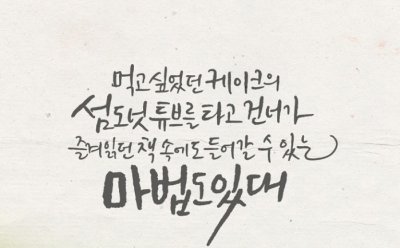 먹고싶었던 케이크의
섬도넛 튜브를 타고 건너가
즐겨읽던 책 속에도 들어갈 수 있는
마법도있대